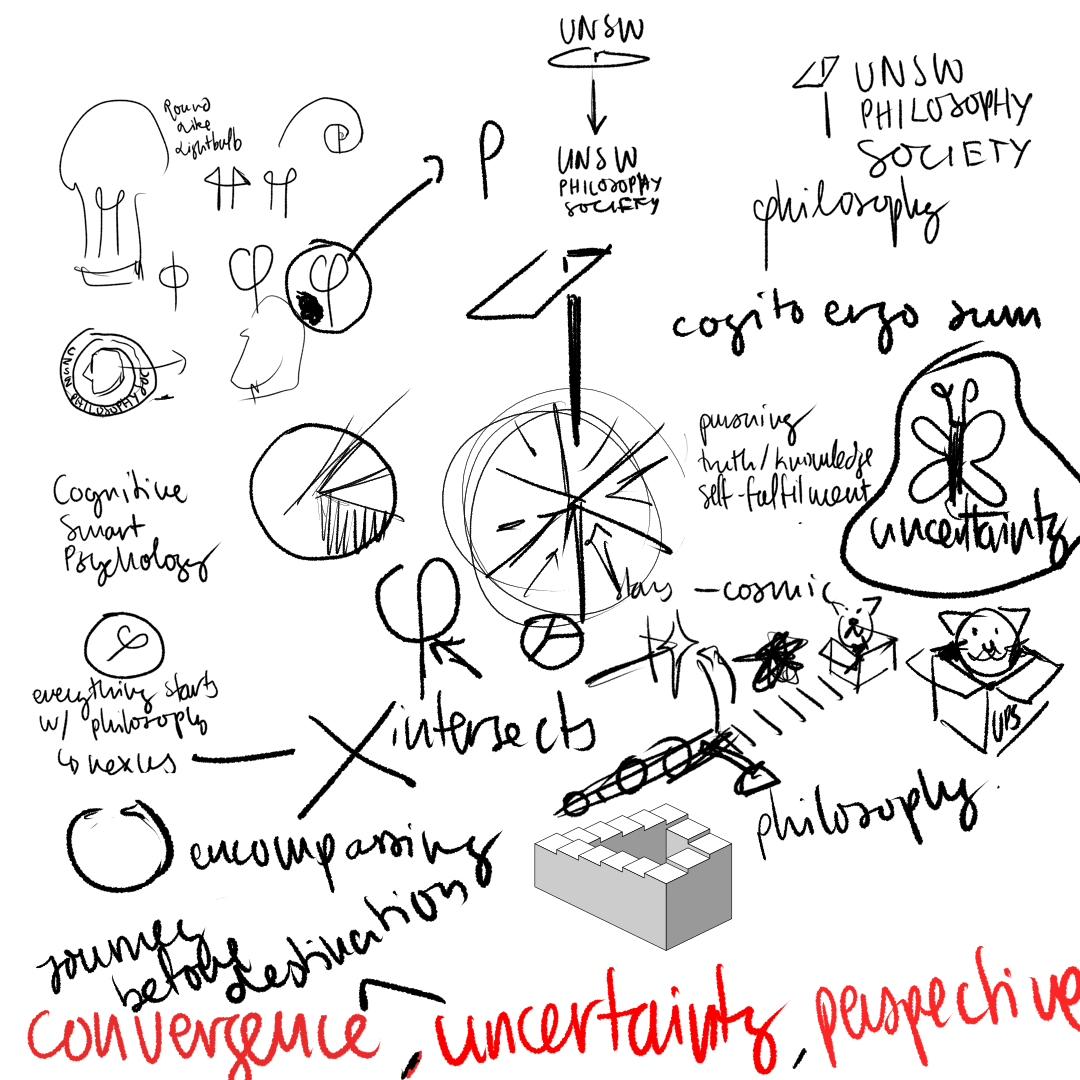 UNSW
UNSW
PHILOSOPHY
SOCIETY
UNSW
PHILOSOPHY
SOCIETY
philosophy
Round
like
Lightbulb
φ
cogito ergo sum
UNSW PHILOSOPHY SOC
pursuing
truth/knowledge
self-fulfilment
uncertainty
Cognitive
Smart
Psychology
stars - cosmic
everything starts
w/ philosophy
↳ nexus
intersects
UPS
philosophy.
encompassing
journey
before destination
convergence, uncertainty, perspective